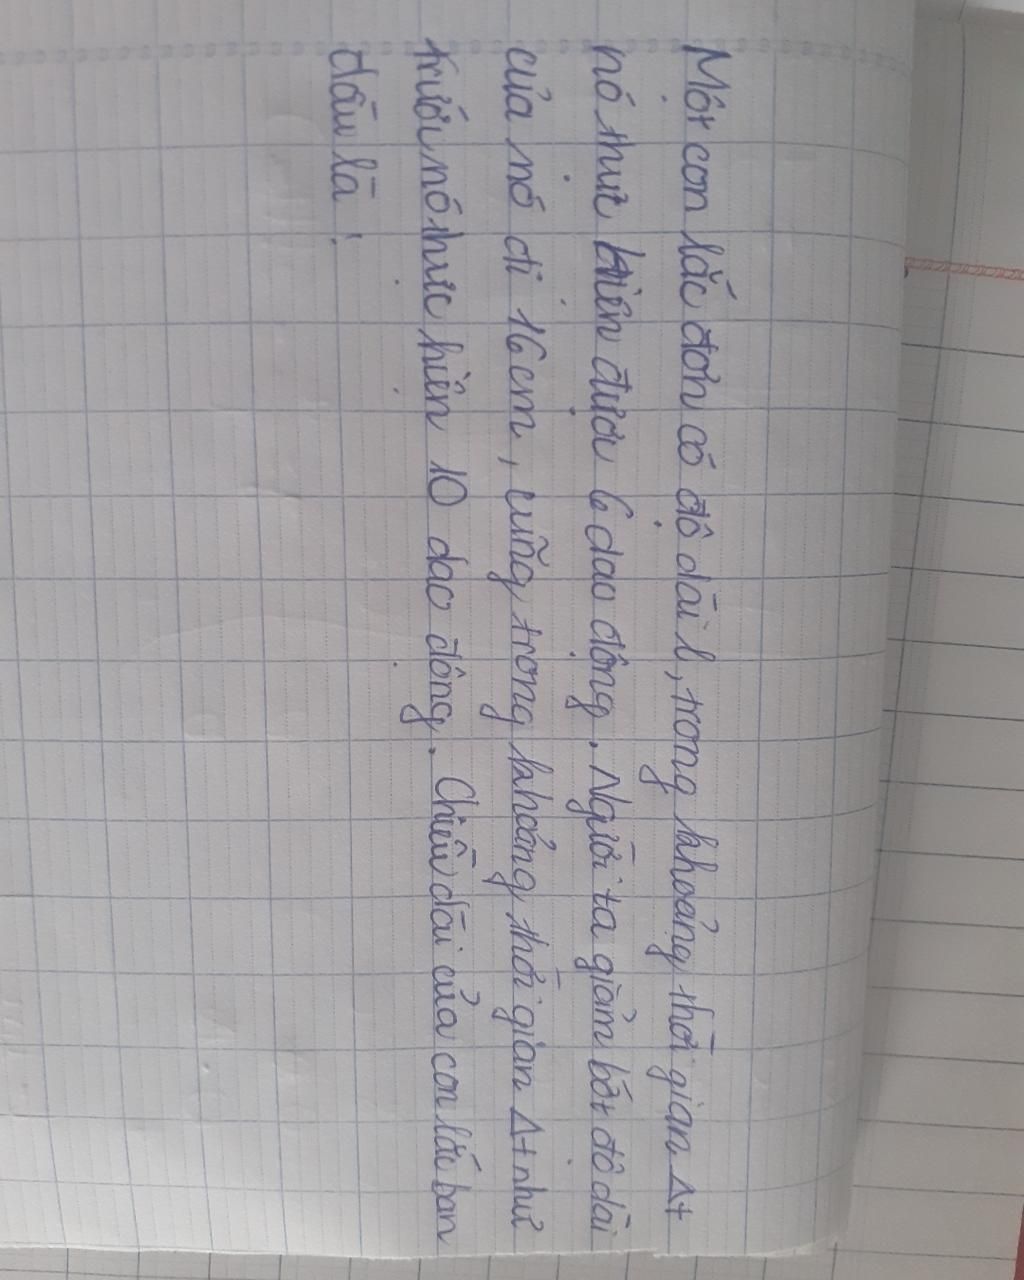 Một con lắc đơn có độ dài l, trong khoảng thời gian Δt
nó thực hiện được 6 dao động. Người ta giảm bớt độ dài
của nó đi 16cm, cũng trong khoảng thời gian Δt như
trước nó thực hiện 10 dao động. Chiều dài của con lắc ban
đầu là!